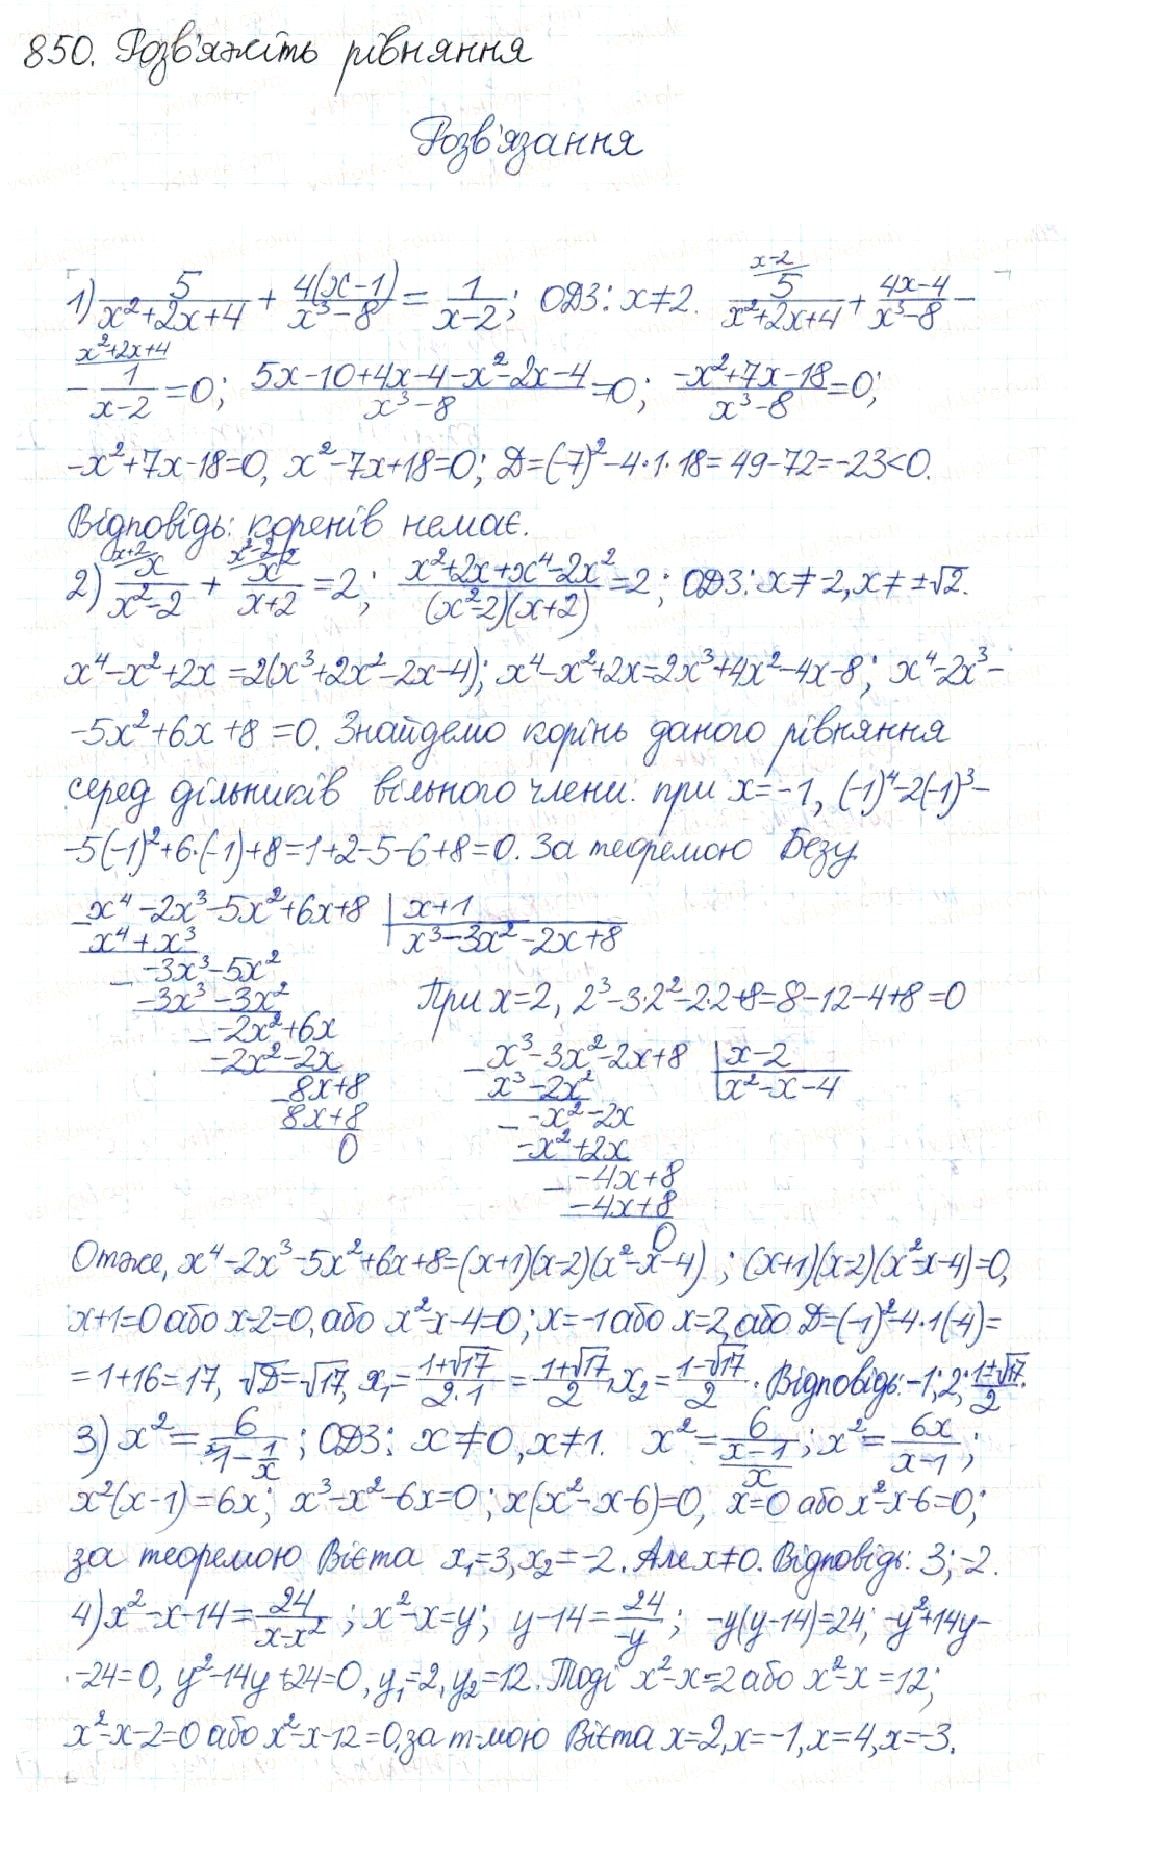 850. Розв'яжіть рівняння
Розв'язання
1) 5/(x²+2x+4) + 4(x-1)/(x³-8) = 1/(x-2); ОДЗ: x≠2. 5/(x²+2x+4) (x-2) + (4x-4)/(x³-8) -
- 1/(x-2) (x²+2x+4) =0; (5x-10+4x-4-x²-2x-4)/(x³-8) =0; (-x²+7x-18)/(x³-8) =0;
-x²+7x-18=0, x²-7x+18=0; D=(-7)²-4·1·18=49-72=-23<0.
Відповідь: коренів немає.
2) x/(x²-2) (x+2) + x²/(x+2) (x²-2) =2; (x²+2x+x⁴-2x²)/((x²-2)(x+2)) =2; ОДЗ: x≠-2, x≠±√2.
x⁴-x²+2x=2(x³+2x²-2x-4); x⁴-x²+2x=2x³+4x²-4x-8; x⁴-2x³-
-5x²+6x+8=0. Знайдемо корінь даного рівняння
серед дільників вільного члени: при x=-1, (-1)⁴-2(-1)³-
-5(-1)²+6·(-1)+8=1+2-5-6+8=0. За теоремою Безу
x⁴-2x³-5x²+6x+8 | x+1
x⁴+x³ x³-3x²-2x+8
-3x³-5x²
-3x³-3x² При x=2, 2³-3·2²-2·2+8=8-12-4+8=0
-2x²+6x
-2x²-2x x³-3x²-2x+8 | x-2
8x+8 x³-2x² x²-x-4
8x+8 -x²-2x
0 -x²+2x
-4x+8
-4x+8
0
Отже, x⁴-2x³-5x²+6x+8=(x+1)(x-2)(x²-x-4); (x+1)(x-2)(x²-x-4)=0,
x+1=0 або x-2=0, або x²-x-4=0; x=-1 або x=2, або D=(-1)²-4·1(-4)=
=1+16=17, √D=√17, x₁=(1+√17)/(2·1)=(1+√17)/2, x₂=(1-√17)/2. Відповідь: -1; 2; (1±√17)/2.
3) x²=6/(1-1/x); ОДЗ: x≠0, x≠1. x²=6/((x-1)/x); x²=6x/(x-1);
x²(x-1)=6x; x³-x²-6x=0; x(x²-x-6)=0, x=0 або x²-x-6=0;
за теоремою Вієта x₁=3, x₂=-2. Але x≠0. Відповідь: 3; -2.
4) x²-x-14=24/(x-x²); x²-x=y; y-14=24/(-y); -y(y-14)=24; -y²+14y-
-24=0, y²-14y+24=0, y₁=2, y₂=12. Тоді x²-x=2 або x²-x=12;
x²-x-2=0 або x²-x-12=0, за т-мою Вієта x=2, x=-1, x=4, x=-3.